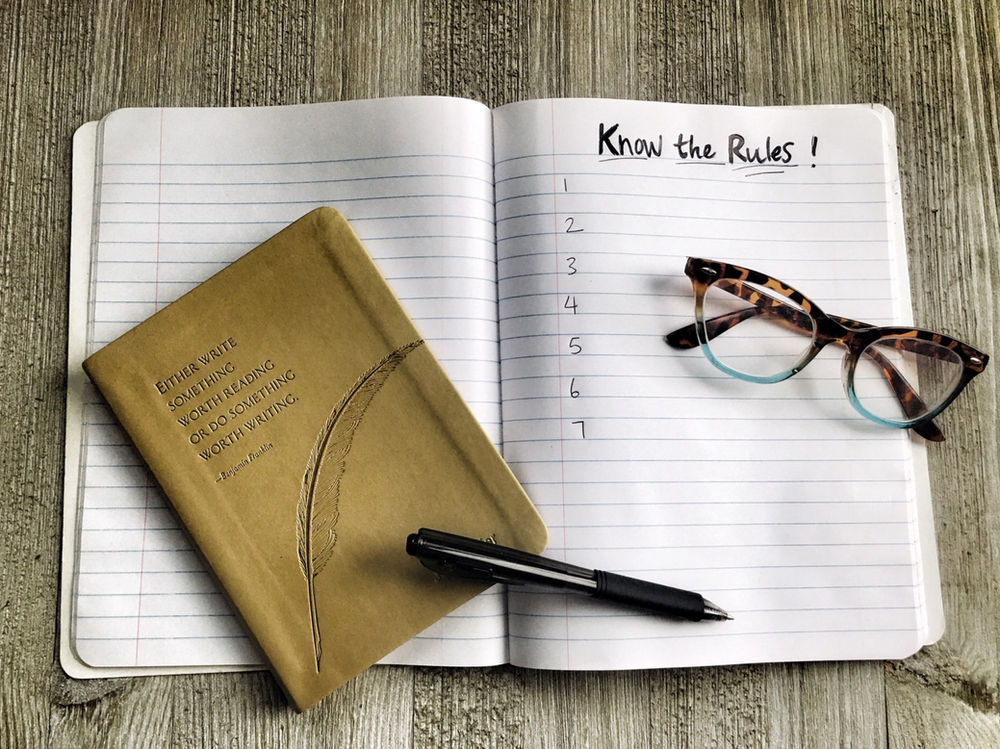 EITHER WRITE
SOMETHING
WORTH READING
OR DO SOMETHING
WORTH WRITING.
—Benjamin Franklin
Know the Rules !
1
2
3
4
5
6
7